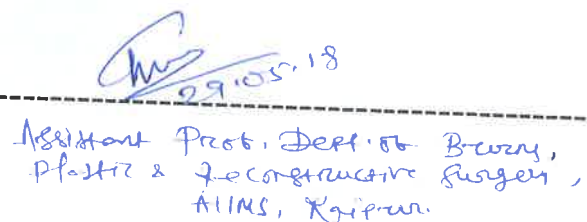 29.05.18
Assistant Prof. Dept. of Burns,
Plastic & Reconstructive Surgery,
AIIMS, Raipur.